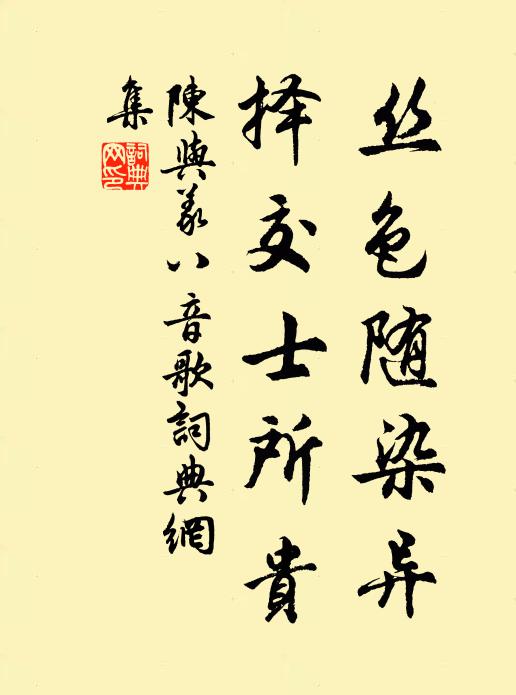 丝色随染异
择交士所貴
陳與義八音歌詞典網
集
詞典網印